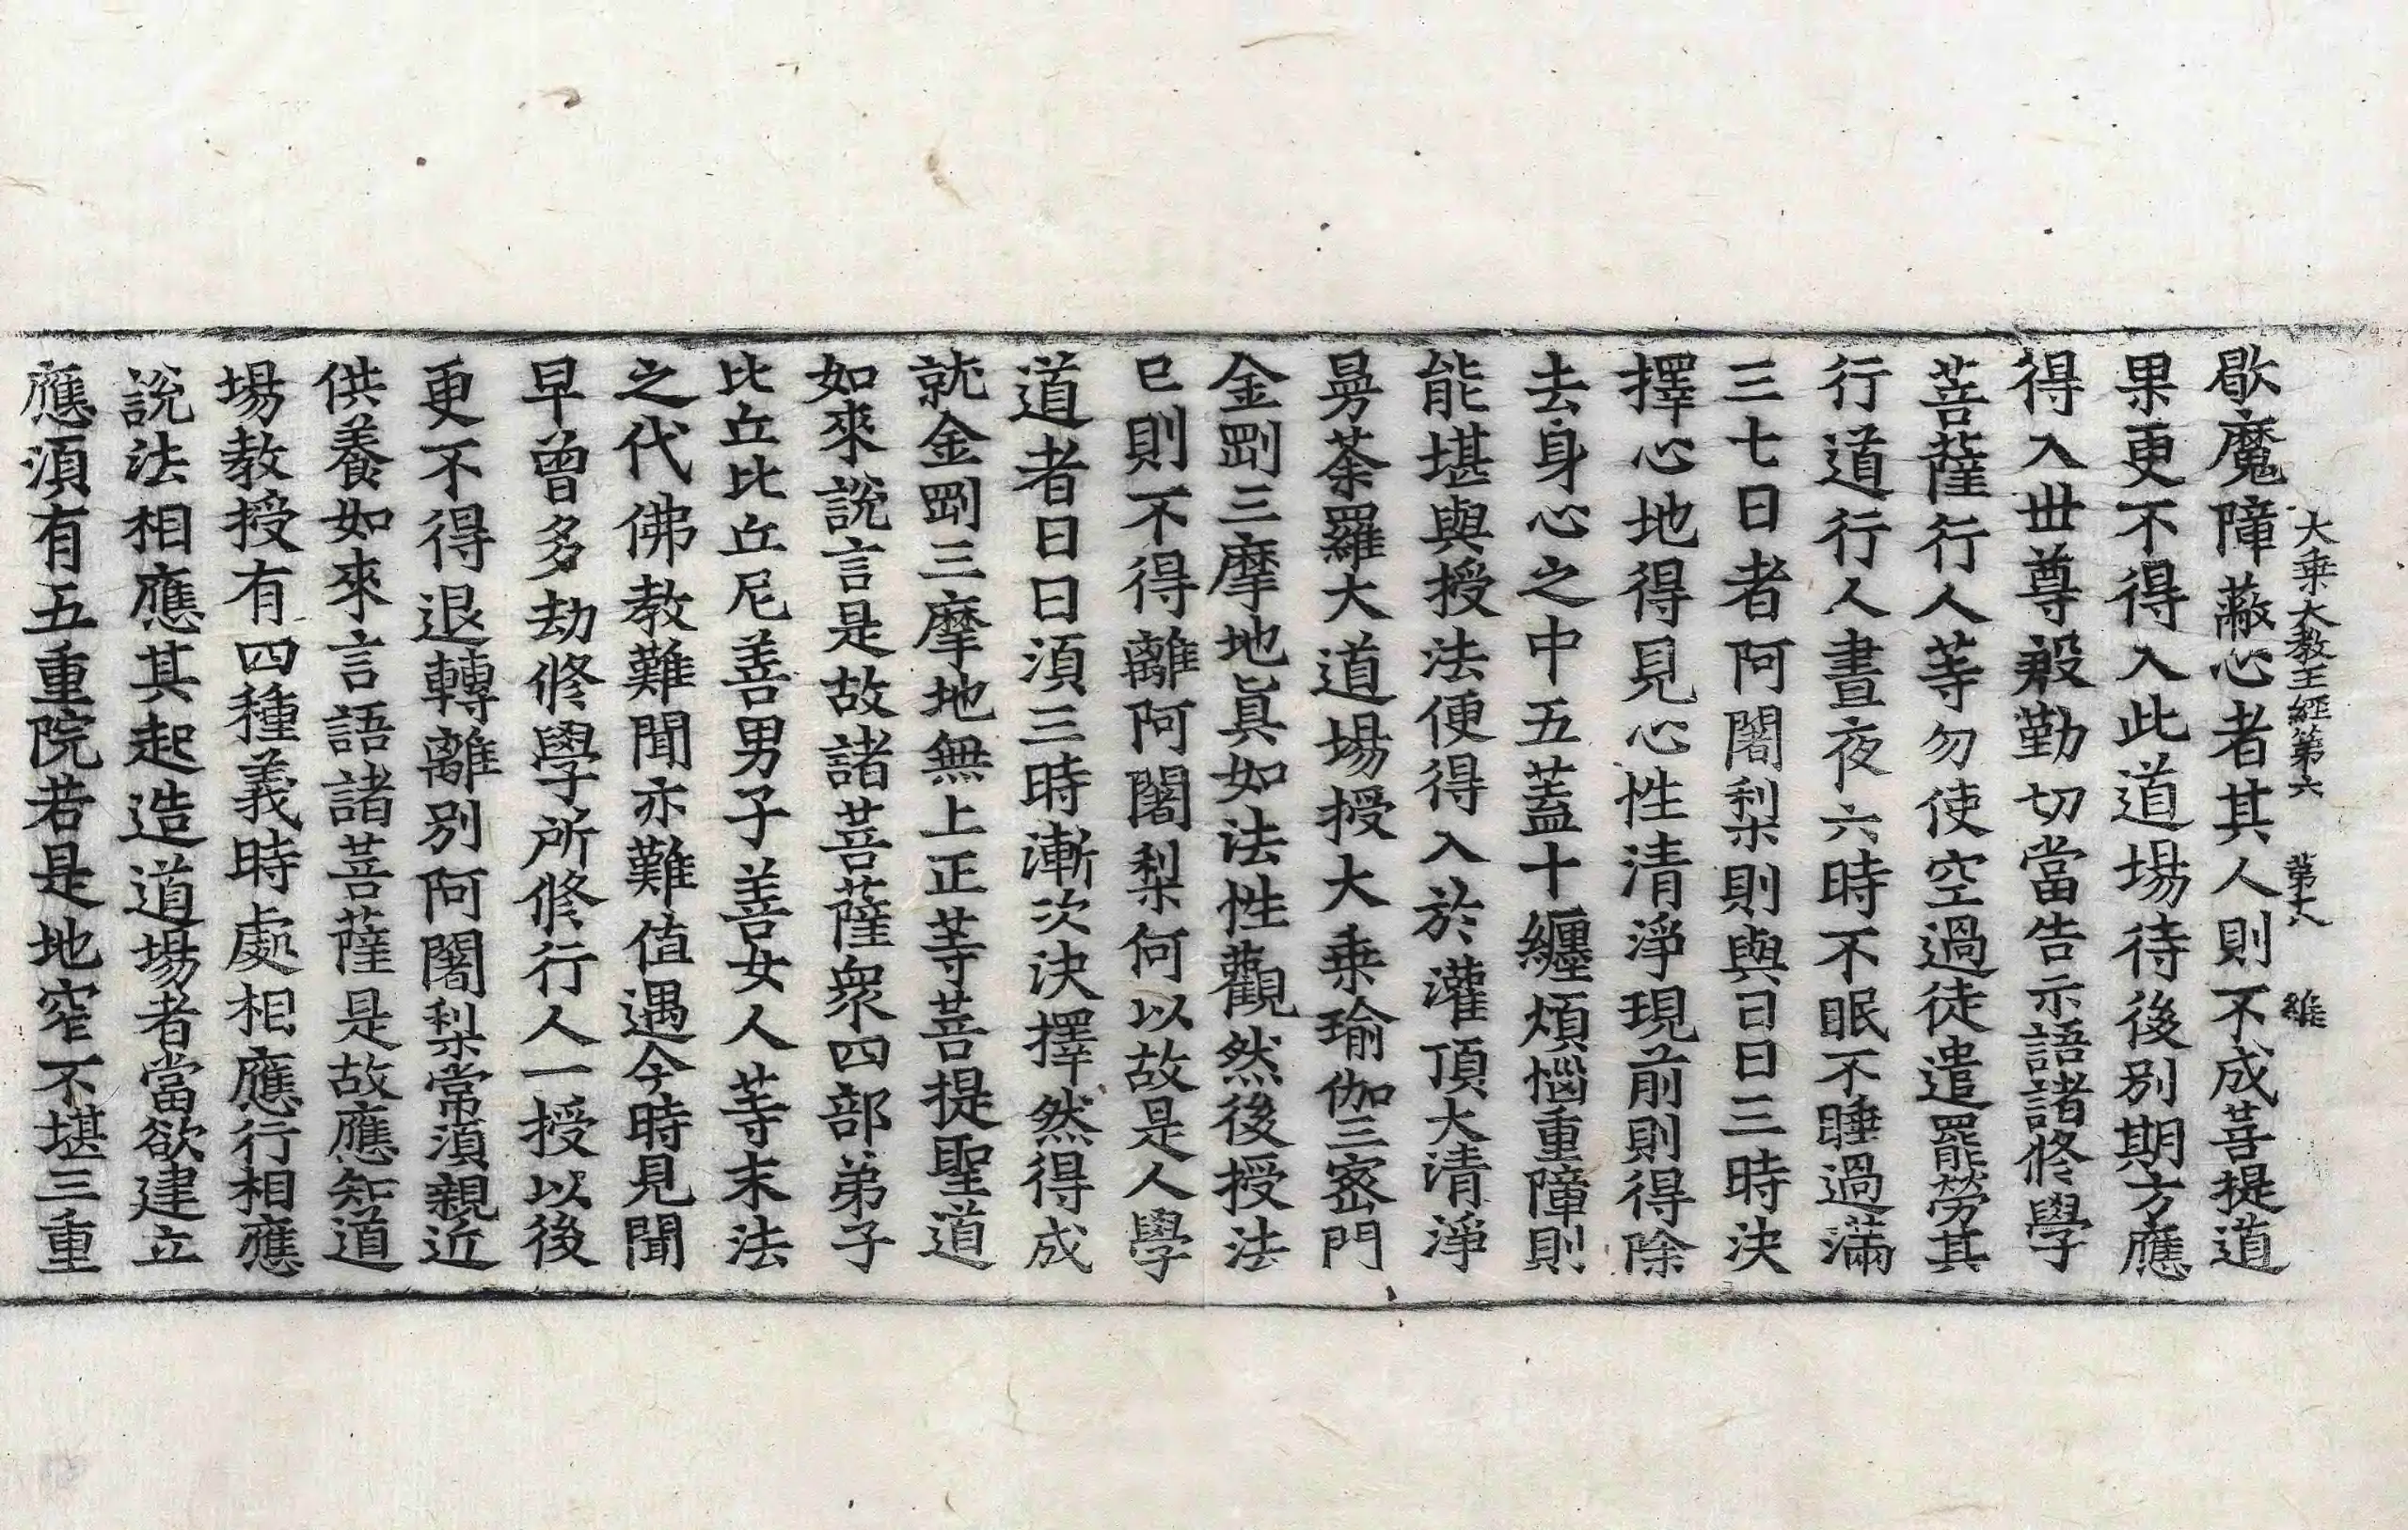 大乗大教王經第六 第十八 維
歇魔障蔽心者其人則不成菩提道
果更不得入此道場待後別期方應
得入世尊慇勤切當告示語諸修學
菩薩行人等勿使空過徒遣罷勞其
行道行人晝夜六時不眠不睡過滿
三七日者阿闍梨則與日日三時決
擇心地得見心性清淨現前則得除
去身心之中五蓋十纏煩惱重障則
能堪與授法便得入於灌頂大清淨
曼荼羅大道場授大乗瑜伽三密門
金剛三摩地眞如法性觀然後授法
已則不得離阿闍梨何以故是人學
道者日日須三時漸次決擇然得成
就金剛三摩地無上正等菩提聖道
如來說言是故諸菩薩衆四部弟子
比丘比丘尼善男子善女人等末法
之代佛教難聞亦難值遇今時見聞
早曾多劫修學所修行人一授以後
更不得退轉離別阿闍梨常須親近
供養如來言語諸菩薩是故應知道
場教授有四種義時處相應行相應
說法相應其起造道場者當欲建立
應須有五重院若是地窄不堪三重